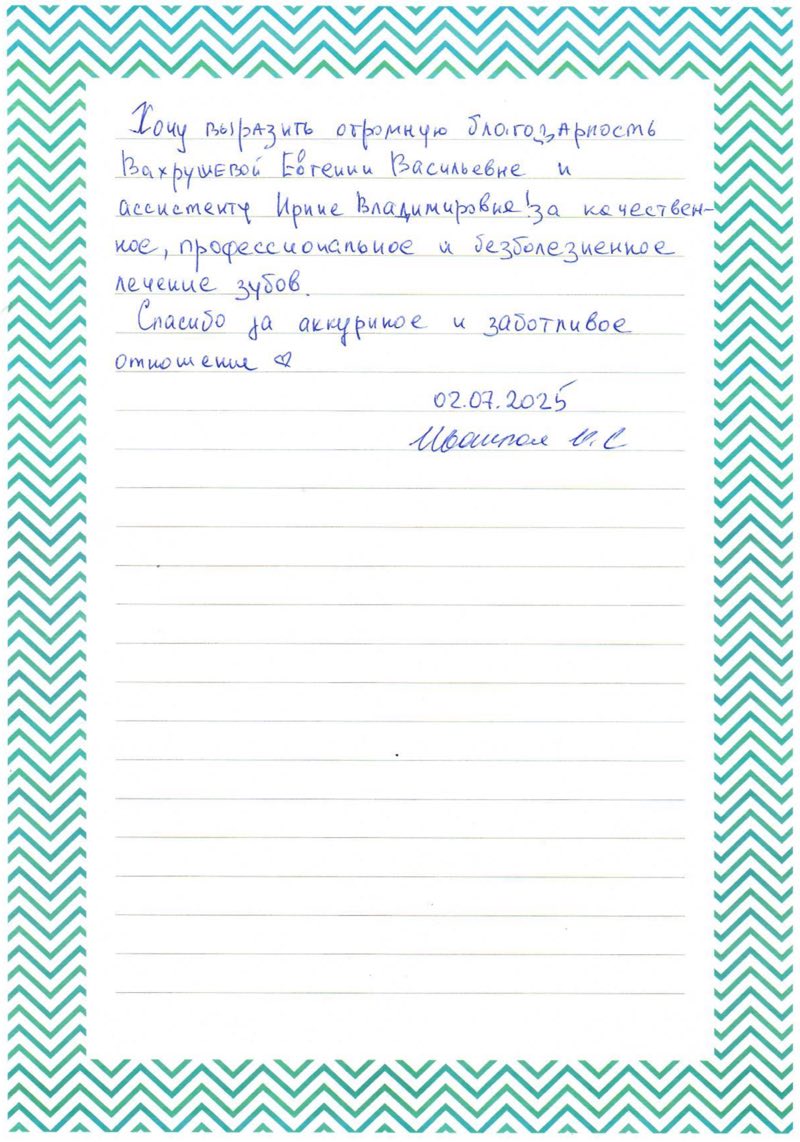 Хочу выразить огромную благодарность
Вахрушевой Евгении Васильевне и
ассистенту Ирине Владимировне! за качествен-
ное, профессиональное и безболезненное
лечение зубов.
Спасибо за аккуриное и заботливое
отношение ♡
02.07.2025